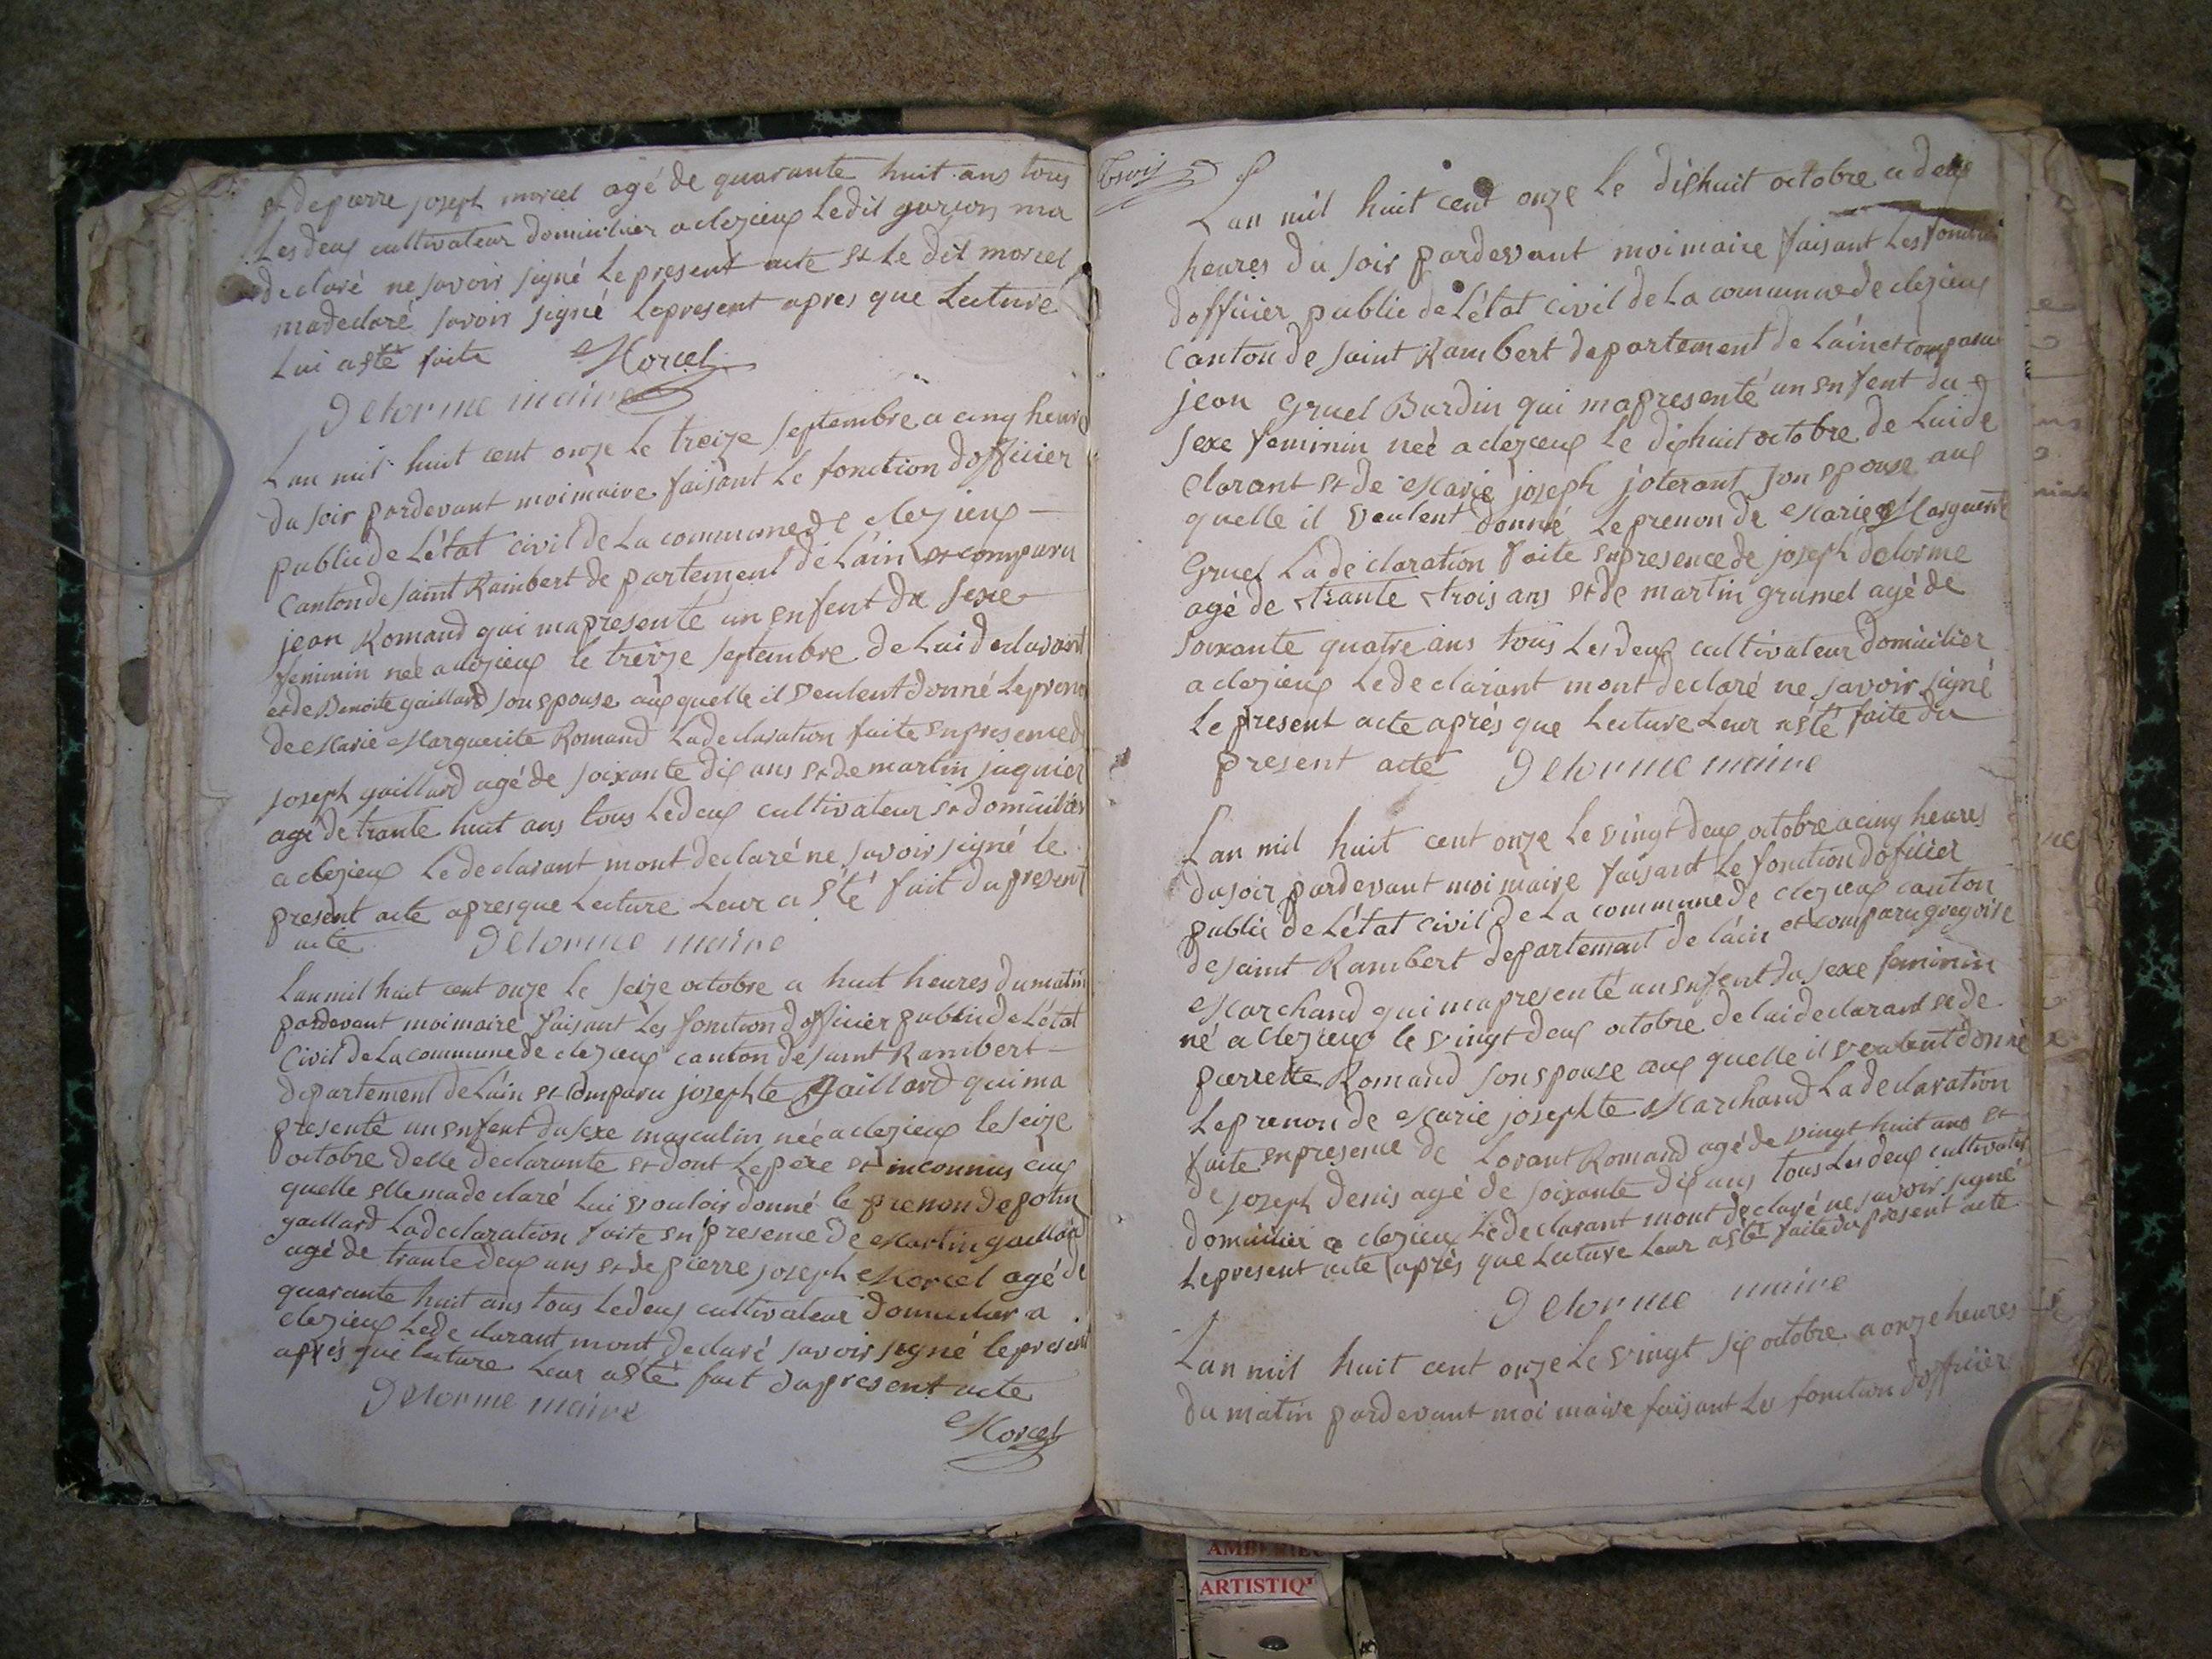 et de pierre joseph morcel agé de quarante huit ans tous
Les deux cultivateur domicilier a clezieux Ledit garson ma
declaré ne savoir signé Le present acte et Le dit morcel
madeclaré savoir signé Lepresent apres que Lecture
Lui a eté faite Morcel
Delorme maire
Lan mil huit cent onze Le treize septembre a cinq heures
du soir pardevant moi maire faisant Le fonction dofficier
public de Létat civil de La commune de clezieux
Canton de saint Rambert departement de Lain et comparu
jean Romand qui mapresenté un enfent du sexe
feminin neé a clezieux le treize septembre de Lui declarant
et de Benoite gaillard son epouse aux quelle il veulent donné Leprenon
de Marie Marguerite Romand La declaration faite enpresence de
joseph gaillard agé de soixante dix ans et de martin juquier
agé de trante huit ans tous Ledeux cultivateur et domicilier
a clezieux Le declarant mont declaré ne savoir signé le
present acte apres que Lecture Leur a eté fait du present
acte Delorme maire
Lan mil huit cent onze Le seize octobre a huit heures du matin
pardevant moi maire faisant Les fonction dofficier public de Létat
Civil de La commune de clezieux canton de saint Rambert
departement de Lain et comparu josephte Gaillard qui ma
presenté un enfent du sexe masculin neé a clezieux le seize
octobre delle declarante et dont Le pere et inconnus aux
quelle elle madeclaré Lui vouloir donné le prenon de potin
gaillard La declaration faite en presence de Martin gaillard
agé de trante deux ans et de pierre joseph Morcel agé de
quarante huit ans tous Ledeux cultivateur domicilier a
clezieux Lede clarant mont declaré savoir signé le present
aprés que lecture Leur a eté fait du present acte
Delorme maire
Morcel
trois
Lan mil huit cent onze Le dixhuit octobre a deux
heures du soir pardevant moi maire faisant Les fonction
dofficier public de Létat civil de La commune de clezieux
Canton de saint Rambert departement de Lain et comparu
jean Gruel Burdin qui mapresenté un enfent du
sexe feminin neé a clezieux Le dixhuit octobre de Lui de
clarant et de Marie joseph joterant son epouse aux
quelle il veulent donné Le prenon de Marie Marguerite
Gruel La declaration faite enpresence de joseph delorme
agé de trante trois ans et de martin grumel agé de
soixante quatre ans tous Les deux cultivateur domicilier
a clezieux Lede clarant mont declaré ne savoir signé
Le present acte aprés que Lecture Leur a eté faite du
present acte Delorme maire
Lan mil huit cent onze Le vingt deux octobre a cinq heures
du soir pardevant moi maire faisant Le fonction doficier
public de Létat civil de La commune de clezieux canton
de saint Rambert departement de lain et comparu gregoire
Marchand qui mapresenté un enfent du sexe feminin
né a clezieux le vingt deux octobre de lui declarant et de
pierrette Romand son epouse aux quelle il veulent donné
Leprenon de Marie josephte Marchand La declaration
faite enpresence de Lorant Romand agé de vingt huit ans et
de joseph denis agé de soixante dix ans tous Les deux cultivateur
domicilier a clezieux Ledeclarant mont declaré ne savoir signé
Lepresent acte aprés que Lecture Leur a eté faite du present acte
Delorme maire
Lan mil huit cent onze Le vingt six octobre a onze heures
du matin pardevant moi maire faisant Les fonction dofficier
ARTISTIQ